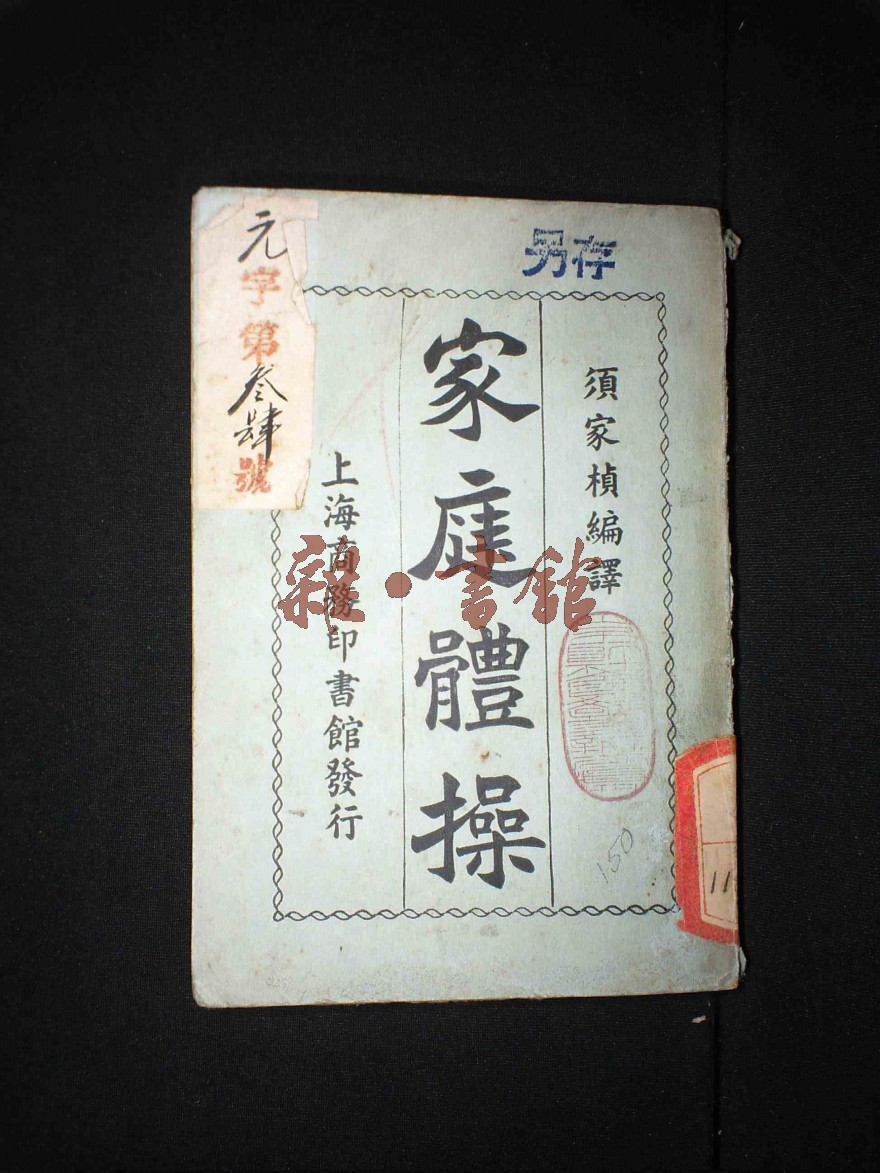 另存
須家楨編譯
家庭體操
上海商務印書館發行
元字第叁肆號
雜·書館
150
11